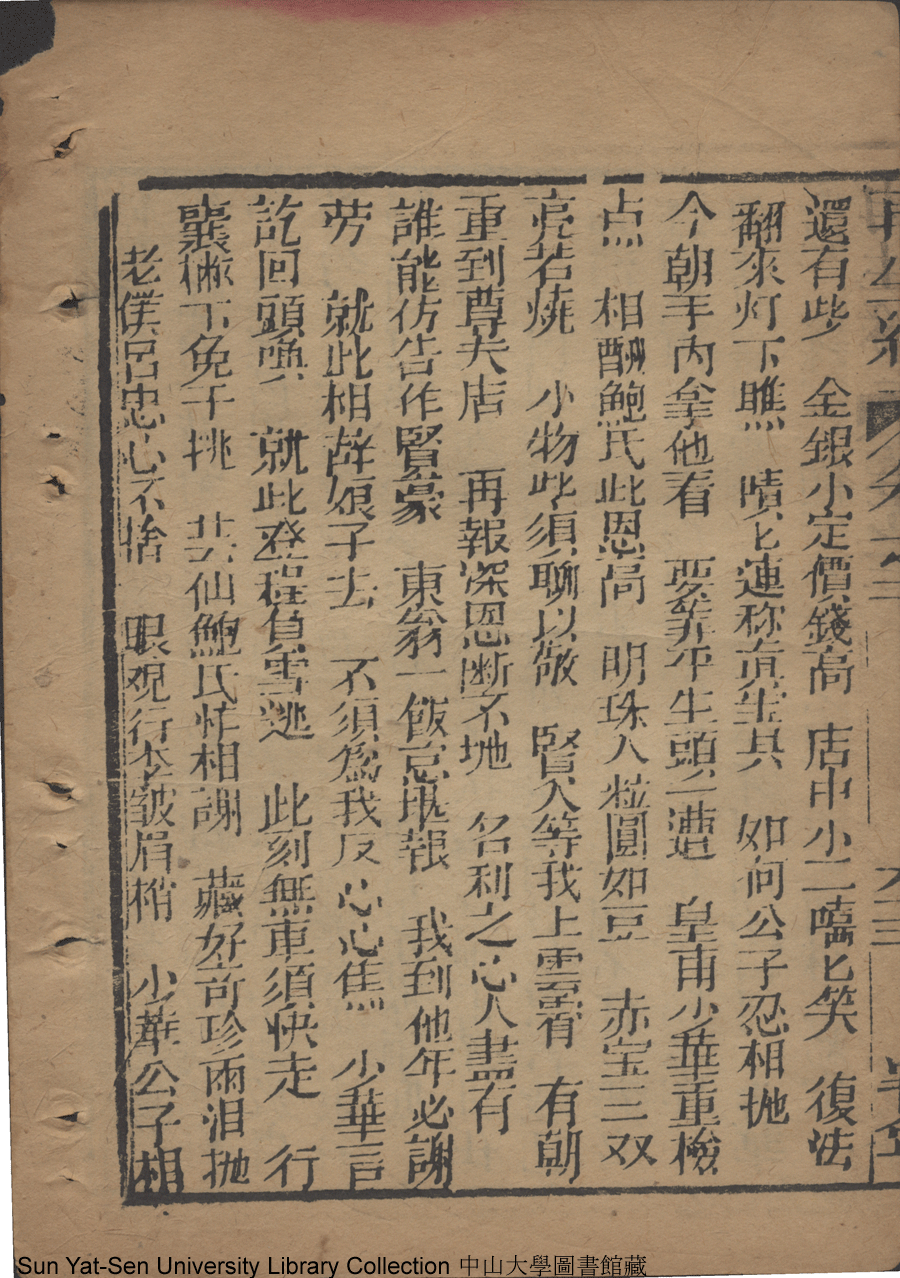 還有些 金銀小定價錢高 店中小二嘻匕笑 復法
翻來灯下瞧 嘖匕連称真宝具 如何公子忍相抛
今朝手內拿他看 要算平生頭一遭 皇甫少華重檢
点 相酧鮑氏此恩高 明珠八粒圓如豆 赤宝三双
亮若燒 小物些須聊以敬 賢人等我上雲霄 有朝
重到尊夫店 再報深恩断不地 名利之心人盡有
誰能仿告作賢豪 東翁一飯忘既報 我到他年必謝
劳 就此相辞娘子去 不須為我反心心焦 少華言
訖回頭喚 就此登程負雪逃 此刻無車須快走 行
襄 不免千挑 共仙鮑氏忙相謝 藏好奇珍雨泪抛
老僕呂忠心不捨 眼观行李皱眉梢 少華公子相
Sun Yat-Sen University Library Collection 中山大學圖書館藏